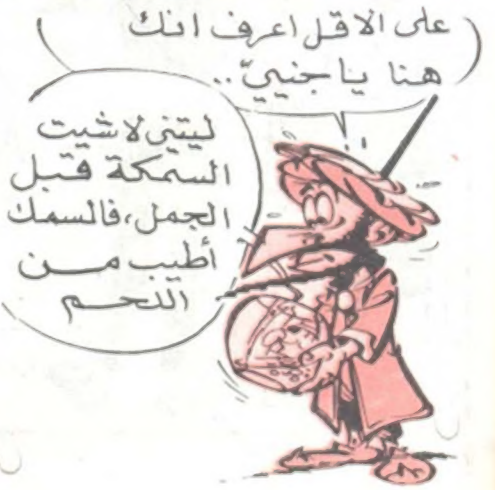 على الاقل اعرف انك
هنا يا جنييّ ..
ليتني لاشيت
السمكة قبل
الجمل، فالسمك
أطيب من
اللحم